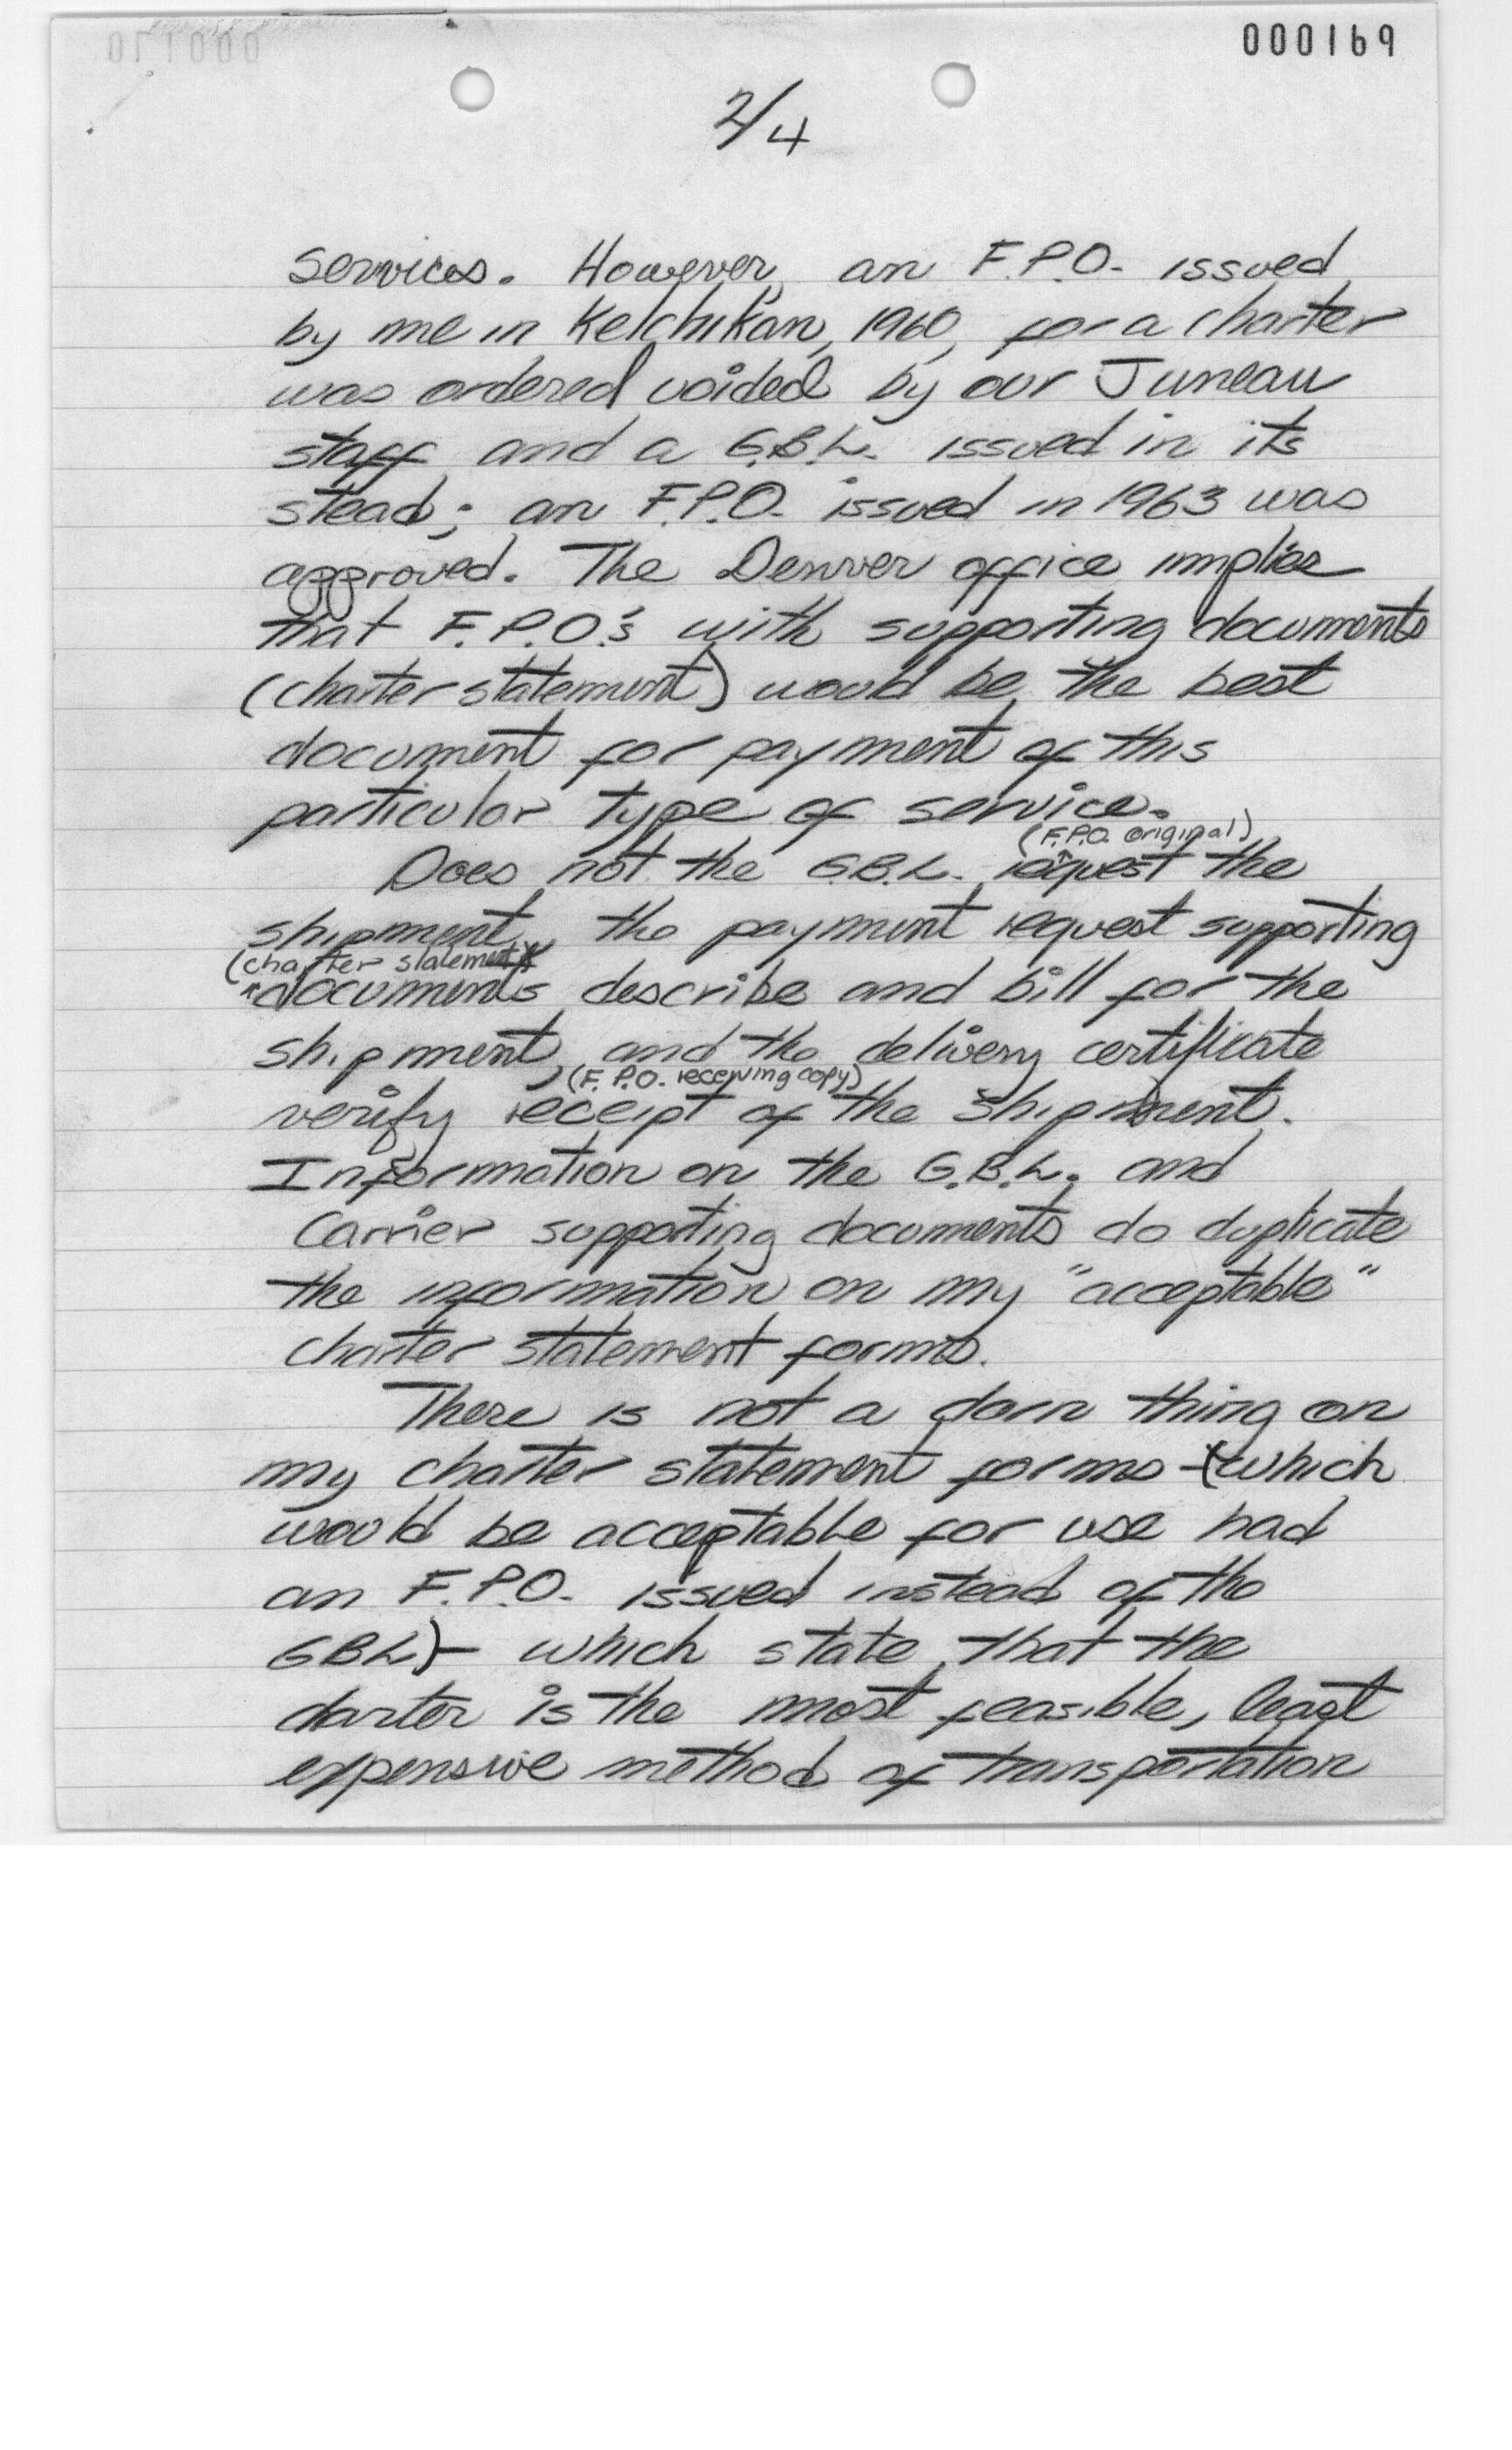 000169
2/4
services. However, an F.P.O. issued
by me in Ketchikan, 1960, for a charter
was ordered voided by our Juneau
staff and a G.B.L. issued in its
stead; an F.P.O. issued in 1963 was
approved. The Denver office implies
that F.P.O.'s with supporting documents
(charter statement) would be the best
document for payment of this
particular type of service.
(F.P.O. original)
Does not the G.B.L. request the
shipment, the payment request supporting
(charter statement)
documents describe and bill for the
shipment, and the delivery certificate
(F.P.O. receiving copy)
verify receipt of the shipment.
Information on the G.B.L. and
Carrier supporting documents do duplicate
the information on my "acceptable"
charter statement forms.
There is not a darn thing on
my charter statement forms - (which
would be acceptable for use had
an F.P.O. issued instead of the
GBL) - which state that the
charter is the most feasible, least
expensive method of transportation